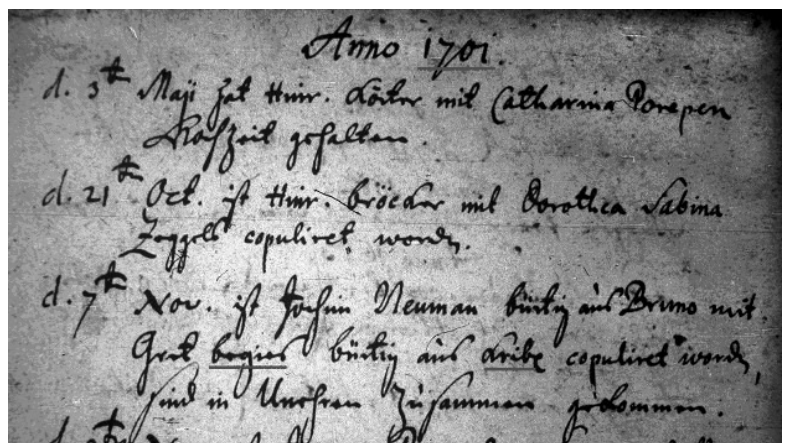 Anno 1701.
d. 3t Maji hat Hinr. Köster mit Catharina Porepen
Hochzeit gehalten.
d. 21t Oct. ist Hinr. bröcker mit Dorothea Sabina
Zeggels copuliret word.
d. 7t Nov. ist Jochim Neuman bürtig aus Bruno mit
Gret begies bürtig aus copuliret word,
sind in Unehren Zusammen gekommen.